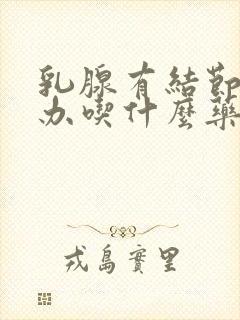 乳腺有結節
办喫什麼藥
戎島實里